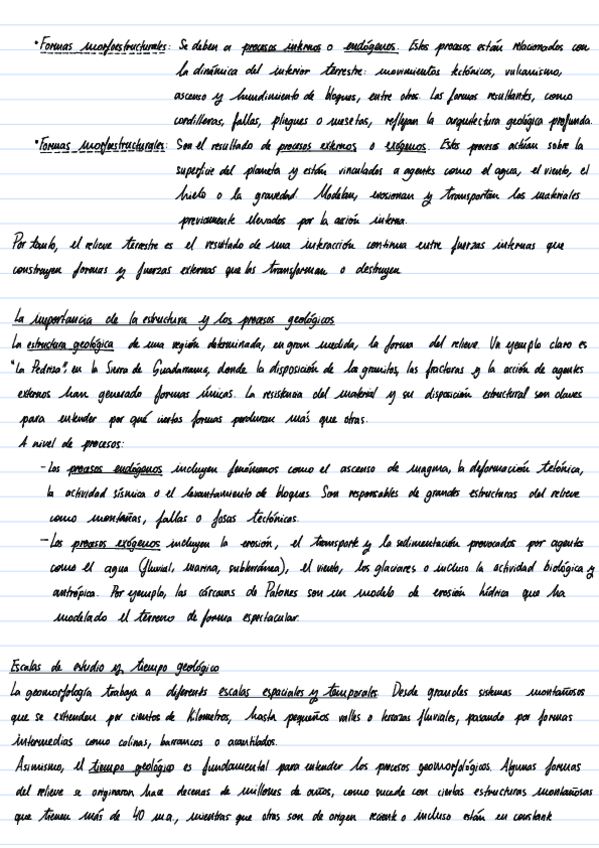 • Formas morfoestructurales: Se deben a procesos internos o endógenos. Estos procesos están relacionados con
la dinámica del interior terrestre: movimientos tectónicos, vulcanismo,
ascenso y hundimiento de bloques, entre otros. Las formas resultantes, como
cordilleras, fallas, pliegues o mesetas, reflejan la arquitectura geológica profunda.
• Formas morfoestructurales: Son el resultado de procesos externos o exógenos. Estos procesos actúan sobre la
superficie del planeta y están vinculados a agentes como el agua, el viento, el
hielo o la gravedad. Modelan, erosionan y transportan los materiales
previamente elevados por la acción interna.
Por tanto, el relieve terrestre es el resultado de una interacción continua entre fuerzas internas que
construyen formas y fuerzas externas que las transforman o destruyen
La importancia de la estructura y los procesos geológicos
La estructura geológica de una región determinada, en gran medida, la forma del relieve. Un ejemplo claro es
"La Pedriza", en la Sierra de Guadarrama, donde la disposición de los granitos, las fracturas y la acción de agentes
externos han generado formas únicas. La resistencia del material y su disposición estructural son claves
para entender por qué ciertas formas perduran más que otras.
A nivel de procesos:
- Los procesos endógenos incluyen fenómenos como el ascenso de magma, la deformación tectónica,
la actividad sísmica o el levantamiento de bloques. Son responsables de grandes estructuras del relieve
como montañas, fallas o fosas tectónicas.
- Los procesos exógenos incluyen la erosión, el transporte y la sedimentación provocados por agentes
como el agua (fluvial, marina, subterránea), el viento, los glaciares o incluso la actividad biológica y
antrópica. Por ejemplo, las cárcavas de Patones son un modelo de erosión hídrica que ha
modelado el terreno de forma espectacular.
Escalas de estudio y tiempo geológico
La geomorfología trabaja a diferentes escalas espaciales y temporales. Desde grandes sistemas montañosos
que se extienden por cientos de kilómetros, hasta pequeños valles o terrazas fluviales, pasando por formas
intermedias como colinas, barrancos o acantilados.
Asimismo, el tiempo geológico es fundamental para entender los procesos geomorfológicos. Algunas formas
del relieve se originaron hace decenas de millones de años, como sucede con ciertas estructuras montañosas
que tienen más de 40 m.a., mientras que otras son de origen reciente o incluso están en constante